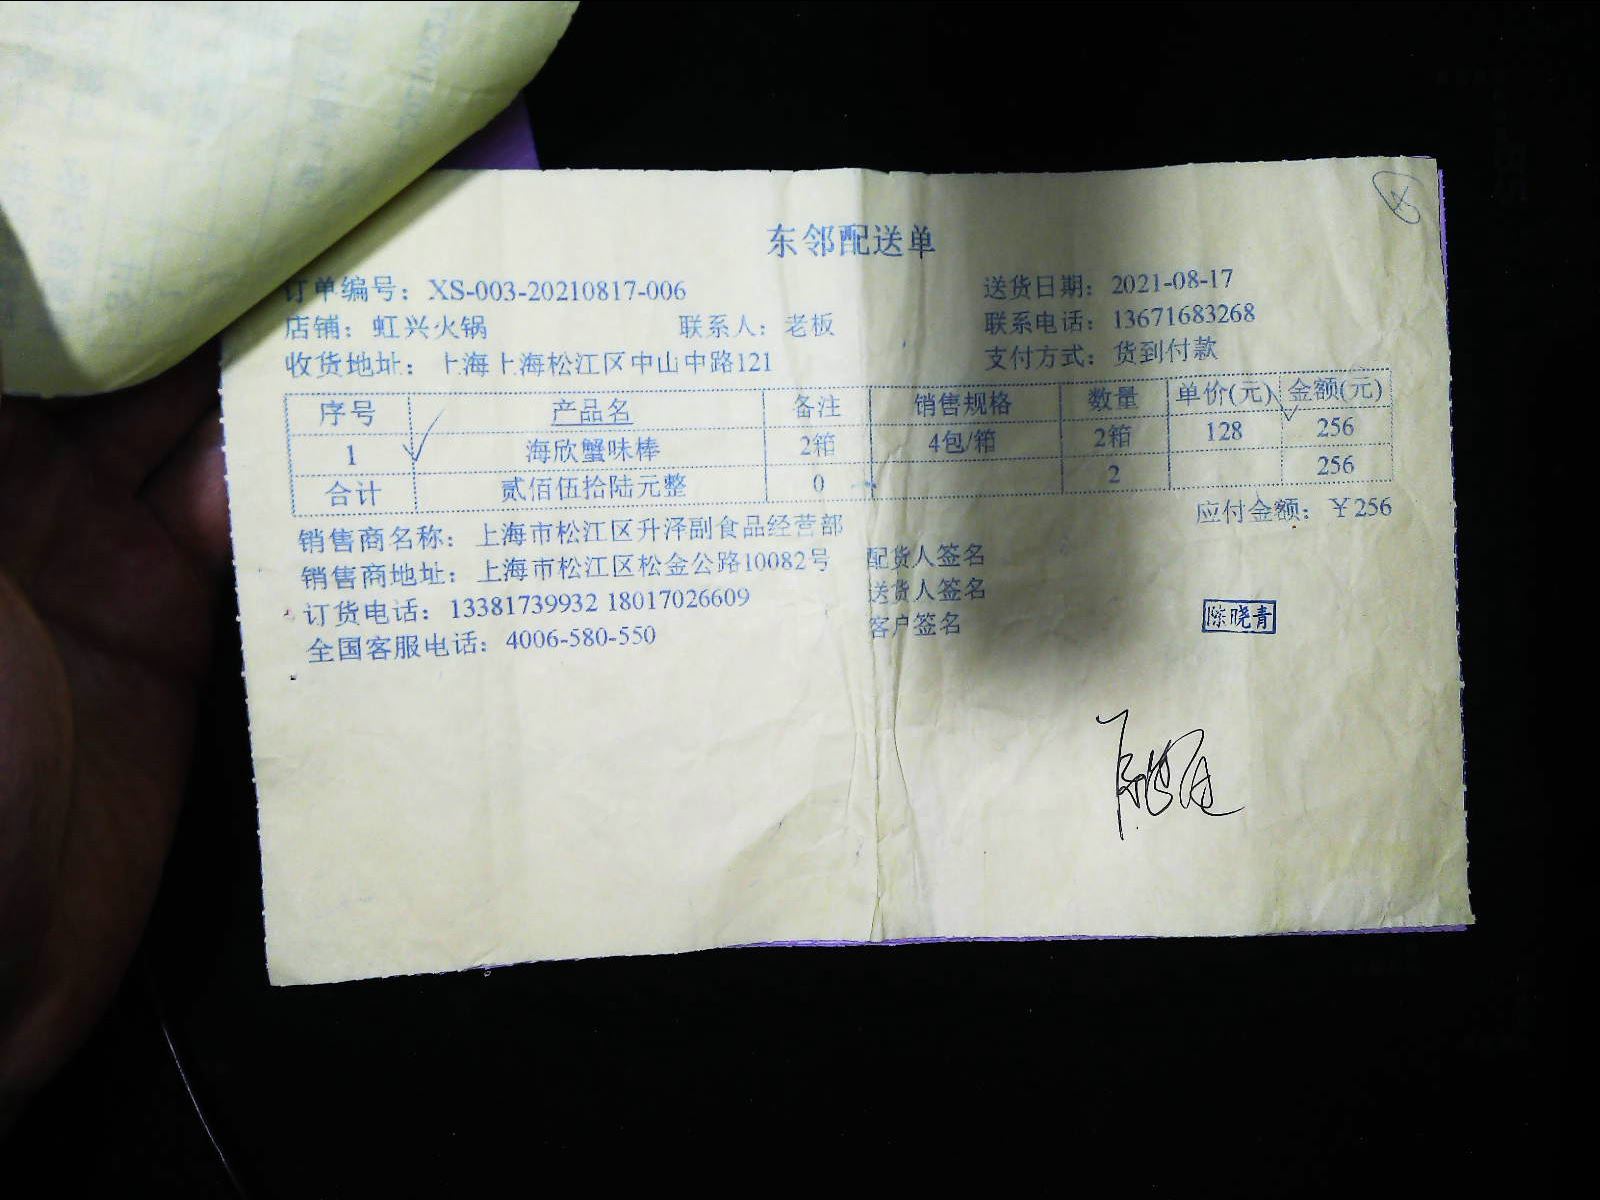 东邻配送单
订单编号：XS-003-20210817-006 送货日期：2021-08-17
店铺：虹兴火锅 联系人：老板 联系电话：13671683268
收货地址：上海上海松江区中山中路121 支付方式：货到付款
序号 产品名 备注 销售规格 数量 单价(元) 金额(元)
1 海欣蟹味棒 2箱 4包/箱 2箱 128 256
合计 贰佰伍拾陆元整 0 2 256
应付金额：￥256
销售商名称：上海市松江区升泽副食品经营部
销售商地址：上海市松江区松金公路10082号 配货人签名
订货电话：13381739932 18017026609 送货人签名
全国客服电话：4006-580-550 客户签名
陈晓青